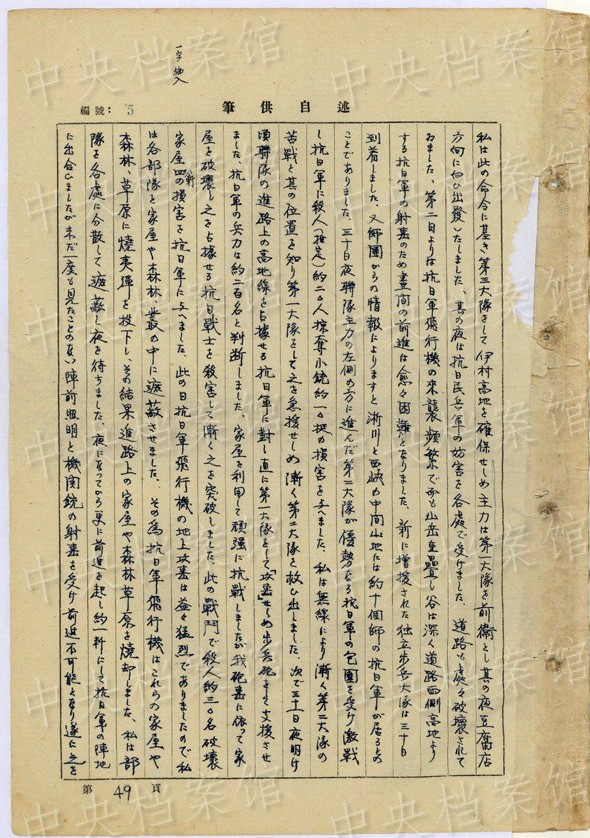 中央档案馆
一字 挿入
編號: 5
述自供筆
私は此の命令に基き第三大隊をして伊村高地を確保せしめ主力は第一大隊を前衛とし其の夜豆腐店
方向に向ひ出發いたしました、其の夜は抗日民兵軍の妨害を各處で受けました、道路も處々破壊されて
ゐました、第二日よりは抗日軍飛行機の來襲頻繁で而も山岳重疊し谷は深く道路両側高地より
する抗日軍の射撃のため晝間の前進は愈々困難となりました、新に增援された独立歩兵大隊は三十日
到着しました、又師團からの情報によりますと淅川と西峽口中間山地には約十個師の抗日軍が居るとの
ことでありました、三十日夜聯隊主力の左側の方に進んだ第二大隊が優勢なる抗日軍の包圍を受け激戰
し抗日軍に殺人(推定)約二〇人掠奪小銃約一〇挺の損害を与へました、私は無線により漸く第二大隊の
苦戰と其の位置を知り第一大隊をして之を急援せしめ漸く第二大隊を救ひ出しました、次で三十一日夜明け
頃聯隊の進路上の高地線を占據せる抗日軍に對し直に第一大隊をして「攻撃」せしめ歩兵砲をして支援させ
ました、抗日軍の兵力は約二百名と判断しました、家屋を利用して頑強に抗戰しましたが我砲撃に依って家
屋を破壊し之を占據せる抗日戰士を殺害して漸く之を突破しました、此の戰鬥で殺人約三〇名破壊
家屋四軒の損害を抗日軍に与へました、此の日抗日軍飛行機の地上攻撃は益々猛烈でありましたので私
は各部隊を家屋や森林、叢の中に遮蔽させました、その為抗日軍飛行機はこれらの家屋や
森林、草原に燒夷弾を投下し、その結果進路上の家屋や森林草原を燒却しました、私は部
隊を各處に分散して遮蔽し夜を待ちました、夜になってから更に前進を起し約一粁にして抗日軍の陣地
に出合ひましたが未だ一度も見たことのない陣前照明と機関銃の射撃を受け前進不可能となり遂に之を
第 49 頁